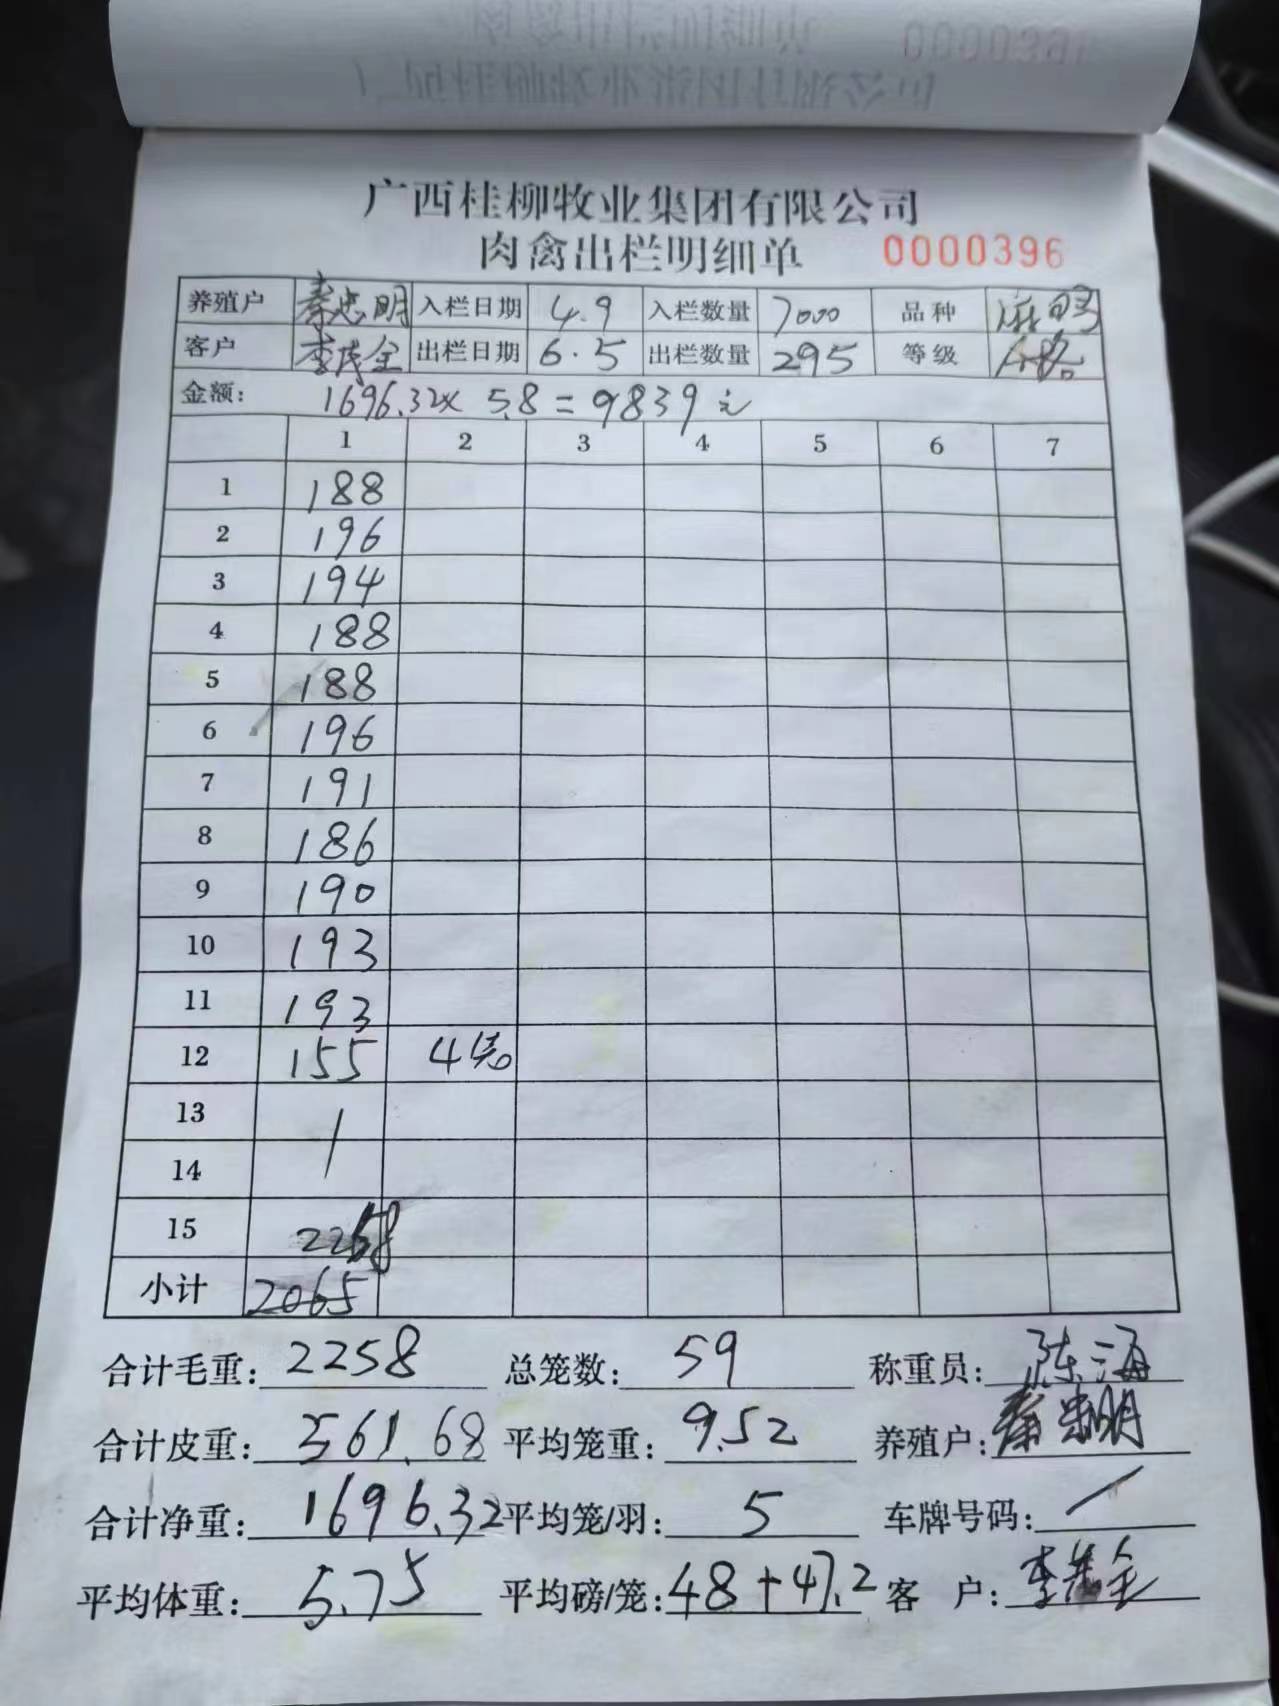 广西桂柳牧业集团有限公司
肉禽出栏明细单 0000396
养殖户 秦忠明 入栏日期 4.9 入栏数量 7000 品种 麻鸭
客户 李茂全 出栏日期 6.5 出栏数量 295 等级 合格
金额: 1696.32x 5.8=9839元
1 2 3 4 5 6 7
1 188
2 196
3 194
4 188
5 188
6 196
7 191
8 186
9 190
10 193
11 193
12 155 4笼
13
14
15 2258
小计 2065
合计毛重: 2258 总笼数: 59 称重员: 陈海
合计皮重: 561.68 平均笼重: 9.52 养殖户: 秦忠明
合计净重: 1696.32 平均笼/羽: 5 车牌号码:
平均体重: 5.75 平均磅/笼: 48+47.2 客户: 李茂全